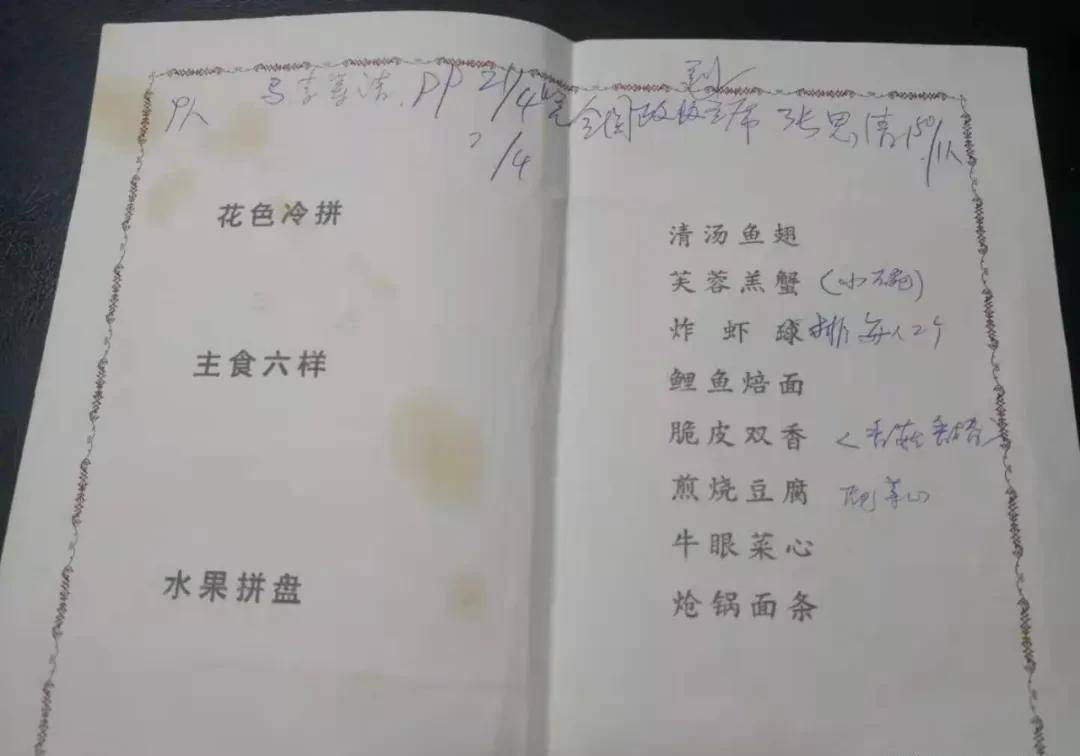 9人
21/4
全国政协主席 张思清 150/1人
/4
花色冷拼
主食六样
水果拼盘
清汤鱼翅
芙蓉羔蟹（小碗）
炸虾球排 每人2个
鲤鱼焙面
脆皮双香
煎烧豆腐 配菜心
牛眼菜心
炝锅面条